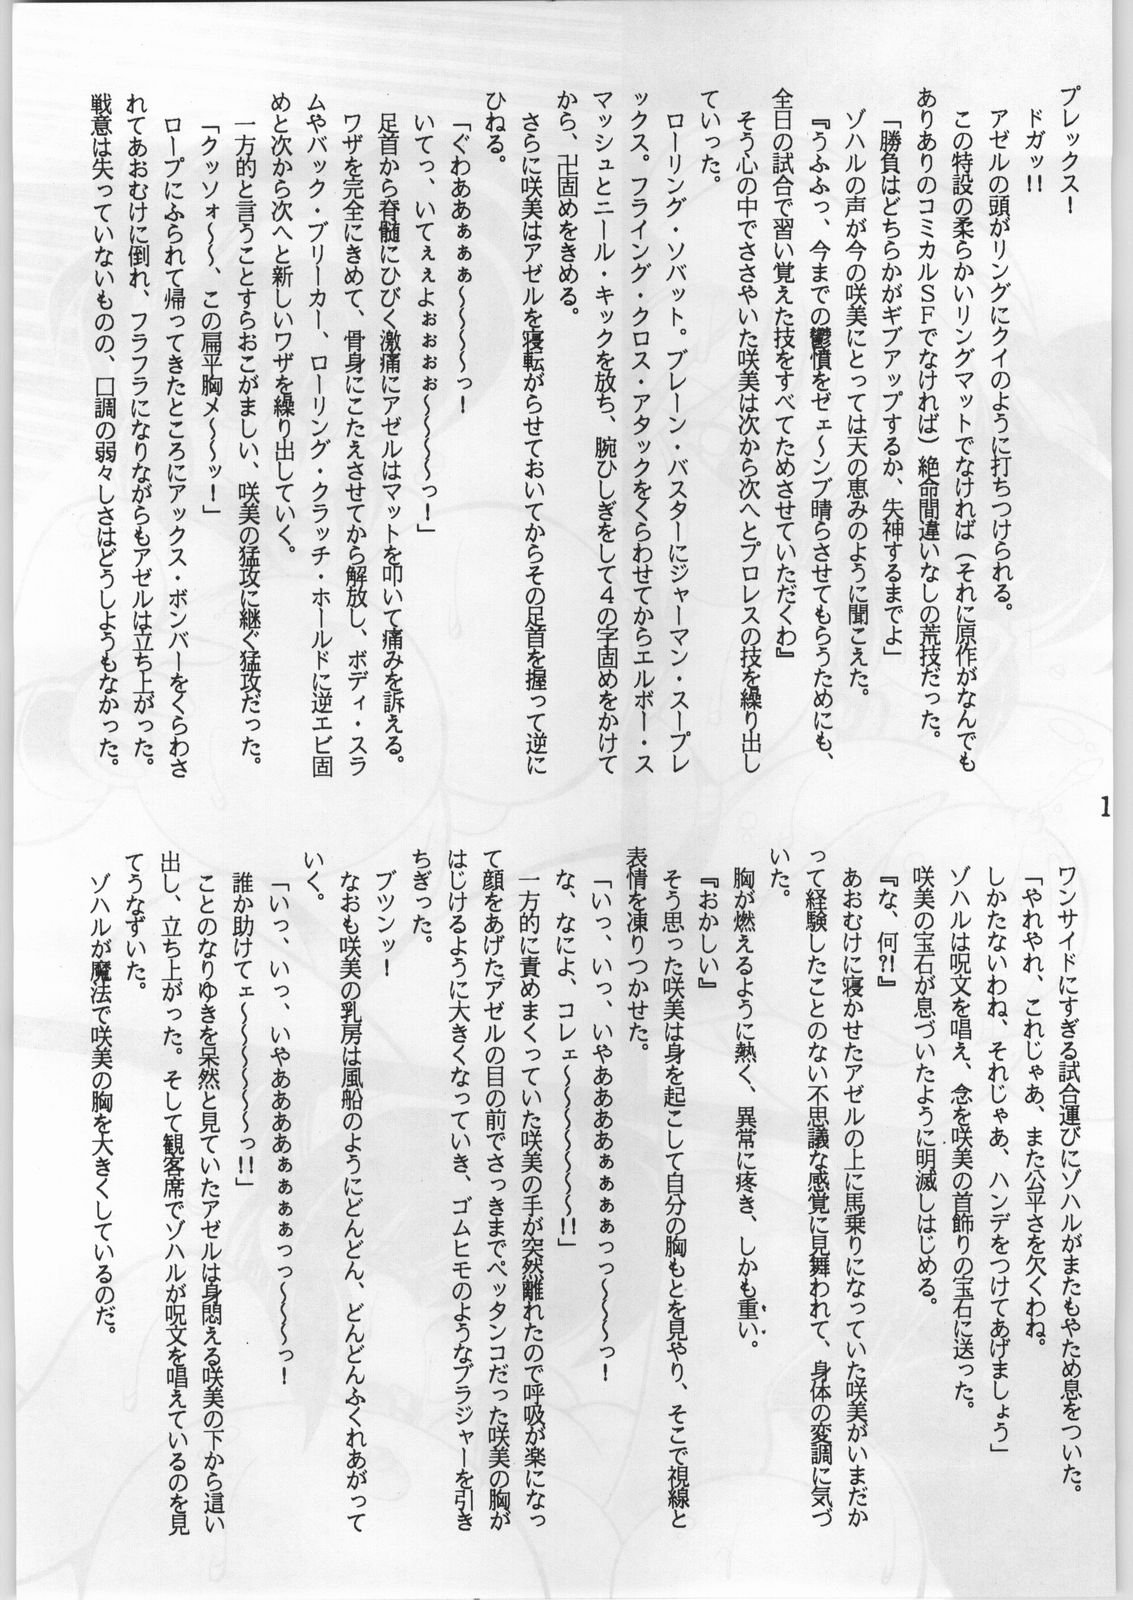 プレックス！
ドガッ!!
アゼルの頭がリングにクイのように打ちつけられる。
この特設の柔らかいリングマットでなければ（それに原作がなんでも
ありありのコミカルＳＦでなければ）絶命間違いなしの荒技だった。
「勝負はどちらかがギブアップするか、失神するまでよ」
ゾハルの声が今の咲美にとっては天の恵みのように聞こえた。
『うふふっ、今までの鬱憤をゼェ〜ンブ晴らさせてもらうためにも、
全日の試合で習い覚えた技をすべてためさせていただくわ』
そう心の中でささやいた咲美は次から次へとプロレスの技を繰り出し
ていった。
ローリング・ソバット。ブレーン・バスターにジャーマン・スープレ
ックス。フライング・クロス・アタックをくらわせてからエルボー・ス
マッシュとニール・キックを放ち、腕ひしぎをして４の字固めをかけて
から、卍固めをきめる。
さらに咲美はアゼルを寝転がらせておいてからその足首を握って逆に
ひねる。
「ぐわああぁぁぁ〜〜〜〜っ！
いてっ、いてぇぇよぉぉぉぉ〜〜〜〜っ！」
足首から脊髄にひびく激痛にアゼルはマットを叩いて痛みを訴える。
ワザを完全にきめて、骨身にこたえさせてから解放し、ボディ・スラ
ムやバック・ブリーカー、ローリング・クラッチ・ホールドに逆エビ固
めと次から次へと新しいワザを繰り出していく。
一方的と言うことすらおこがましい、咲美の猛攻に継ぐ猛攻だった。
「クッソォ〜〜、この扁平胸メ〜〜ッ！」
ロープにふられて帰ってきたところにアックス・ボンバーをくらわさ
れてあおむけに倒れ、フラフラになりながらもアゼルは立ち上がった。
戦意は失っていないものの、口調の弱々しさはどうしようもなかった。
1
ワンサイドにすぎる試合運びにゾハルがまたもやため息をついた。
「やれやれ、これじゃあ、また公平さを欠くわね。
しかたないわね、それじゃあ、ハンデをつけてあげましょう」
ゾハルは呪文を唱え、念を咲美の首飾りの宝石に送った。
咲美の宝石が息づいたように明滅しはじめる。
『な、何?!』
あおむけに寝かせたアゼルの上に馬乗りになっていた咲美がいまだか
って経験したことのない不思議な感覚に見舞われて、身体の変調に気づ
いた。
胸が燃えるように熱く、異常に疼き、しかも重い。
『おかしい』
そう思った咲美は身を起こして自分の胸もとを見やり、そこで視線と
表情を凍りつかせた。
「いっ、いっ、いやああああぁぁぁぁっっ〜〜〜っ！
な、なによ、コレェ〜〜〜〜〜〜〜!!」
一方的に責めまくっていた咲美の手が突然離れたので呼吸が楽になっ
て顔をあげたアゼルの目の前でさっきまでペッタンコだった咲美の胸が
はじけるように大きくなっていき、ゴムヒモのようなブラジャーを引き
ちぎった。
ブツンッ！
なおも咲美の乳房は風船のようにどんどん、どんどんふくれあがって
いく。
「いっ、いっ、いやああああぁぁぁぁっっ〜〜〜〜っ！
誰か助けてェ〜〜〜〜〜〜っ!!」
ことのなりゆきを呆然と見ていたアゼルは身悶える咲美の下から這い
出し、立ち上がった。そして観客席でゾハルが呪文を唱えているのを見
てうなずいた。
ゾハルが魔法で咲美の胸を大きくしているのだ。